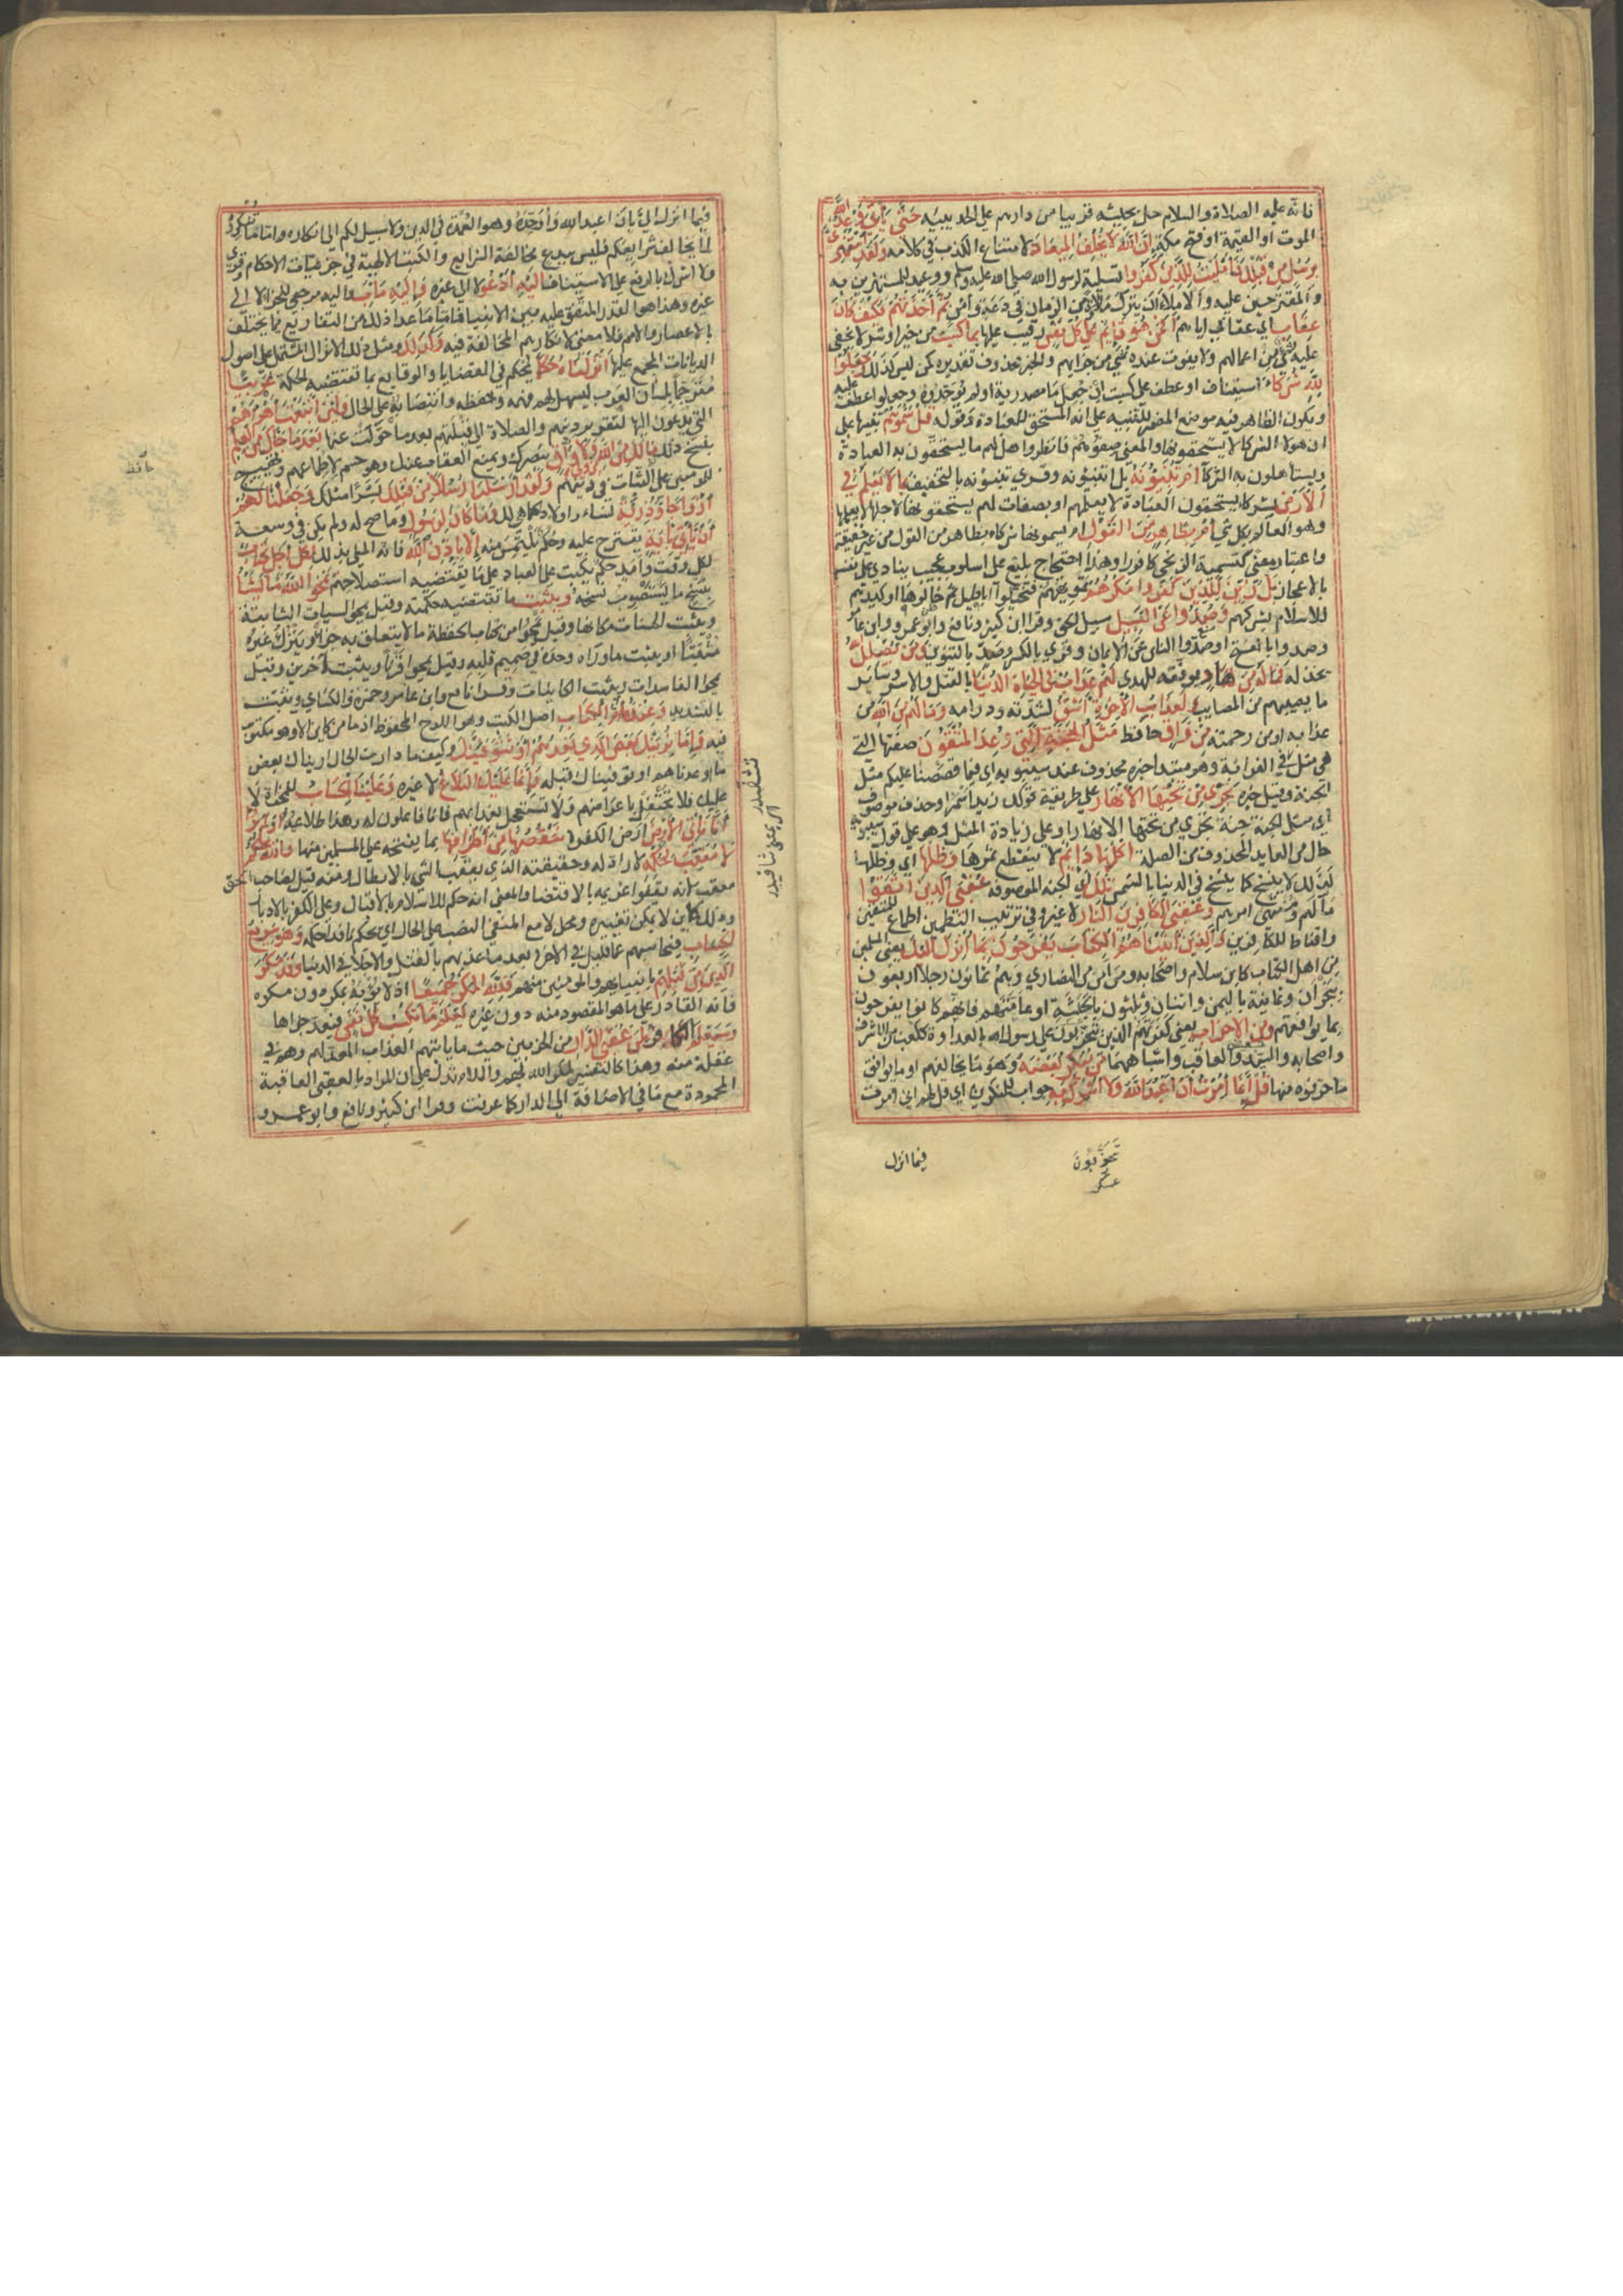 فانه عليه الصلاة والسلام حل بجيشه قريبا من دارهم عام الحديبية حتى يأتي وعد الله
الموت او القيمة او فتح مكة ان الله لا يخلف الميعاد لامتناع الكذب في كلامه ولقد استهزئ
برسل من قبلك فامليت للذين كفروا تسلية لرسول الله صلى الله عليه وسلم ووعيد للمستهزئين به
والمقترحين عليه والاملاء ان يترك ملاوة من الزمان في دعة وأمن ثم أخذتهم فكيف كان
عقاب اي عقابي اياهم أفمن هو قائم على كل نفس رقيب عليها بما كسبت من خير او شر لا يخفى
عليه شئ من اعمالهم ولا يفوت عنده شئ من جزايهم والخبر محذوف تقديره كمن ليس كذلك وجعلوا
لله شركاء استيناف او عطف على كسبت ان جعل ما مصدرية او لم يوحدوه وجعلوا عطف عليه
ويكون الظاهر فيه موضع المضمر للتنبيه على انه المستحق للعبادة وقوله قل سموهم تنبيها على
ان هولا الشركا لا يستحقونها والمعنى صفوهم فانظروا هل لهم ما يستحقون به العبادة
ويستأهلون به الشركة أم تنبئونه بل اتنبئونه وقرئ تنبئونه بالتخفيف بما لا يعلم في
الأرض بشركا يستحقون العبادة لا يعلمهم او بصفات لهم يستحقونها لاجلها لا يعلمها
وهو العالم بكل شئ أم بظاهر من القول ام يسمونهم شركاء بظاهر من القول من غير حقيقة
واعتبار معنى كتسمية الزنجي كافورا وهذا احتجاج بليغ على اسلوب عجيب ينادي على نفسه
بالاعجاز بل زين للذين كفروا مكرهم تمويههم فتخيلوا اباطيل ثم خالوها او كيدهم
للاسلام بشركهم وصدوا عن السبيل سبيل الحق وقرا ابن كثير ونافع وابو عمرو وابن عامر
وصدوا بالفتح اي وصدوا الناس عن الايمان وقرئ بالكسر وصد بالتنوين ومن يضلل الله
يخذله فما له من هاد يوفقه للهدى لهم عذاب في الحياة الدنيا بالقتل والاسر وسائر
ما يصيبهم من المصايب ولعذاب الآخرة اشق لشدته ودوامه وما لهم من الله من
عذابه او من رحمته من واق حافظ مثل الجنة التي وعد المتقون صفتها التي
هي مثل في الغرابة وهو مبتدا خبره محذوف عند سيبويه اي فيما قصصنا عليكم مثل
الجنة وقيل خبره تجري من تحتها الأنهار على طريقة قولك زيد اسمر او حذف موصوف
اي مثل الجنة جنة تجري من تحتها الانهار او على زيادة المثل وهو على قول سيبويه
حال من العايد المحذوف من الصلة اكلها دائم لا ينقطع ثمرها وظلها اي وظلها
كذلك لا ينسخ كما ينسخ في الدنيا بالشمس تلك اي الجنة الموصوفة عقبى الذين اتقوا
مآلهم ومنتهى امرهم وعقبى الكافرين النار لا غير وفي ترتيب النظمين اطماع للمتقين
واقناط للكافرين والذين آتيناهم الكتاب يفرحون بما أنزل اليك يعني المسلمين
من اهل الكتاب كابن سلام واصحابه ومن آمن من النصارى وهم ثمانون رجلا اربعون
بنجران وثمانية باليمن واثنان وثلثون بالحبشة او عامتهم فانهم كانوا يفرحون
بما يوافقهم ومن الأحزاب يعني كفرتهم الذين تحزبوا على رسول الله بالعداوة ككعب بن الاشرف
واصحابه والسيد والعاقب واشياعهما من ينكر بعضه وهو ما يخالفهم او ما يوافق
ما حرفوه منها قل إنما أمرت أن أعبد الله ولا أشرك به جواب للمنكرين اي قل لهم اني امرت
تحزبون
فيما انزل
فيما انزل الي بان اعبد الله واوحده وهو العمدة في الدين ولا سبيل لكم الى انكاره واما ما تنكرونه
لما يخالف شرايعكم فليس ببدع مخالفة الشرايع والكتب الالهية في جزئيات الاحكام وقرئ
ولا اشرك بالرفع على الاستيناف اليه أدعو لا الى غيره واليه مآب واليه مرجعي للجزا لا الى
غيره وهذا هو القدر المتفق عليه بين الانبيا فاما ما عدا ذلك من التفاريع فما يختلف
بالاعصار والامم فلا معنى لانكارهم المخالفة فيه وكذلك ومثل ذلك الانزال المشتمل على اصول
الديانات المجمع عليها أنزلناه حكما يحكم في القضايا والوقايع بما تقتضيه الحكمة عربيا
مترجما بلسان العرب ليسهل لهم فهمه وحفظه وانتصابه على الحال ولئن اتبعت أهواءهم
التي يدعون اليها كتقرير دينهم والصلاة الى قبلتهم بعد ما حولت عنها بعد ما جاءك من العلم
بنسخ ذلك ما لك من الله من ولي ولا واق ينصرك ويمنع العقاب عنك وهو حسم لاطماعهم وتهييج
للمومنين على الثبات في دينهم ولقد أرسلنا رسلا من قبلك بشرا مثلك وجعلنا لهم
أزواجا وذرية نساء واولادا كما هي لك وما كان لرسول وما صح له ولم يكن في وسعه
أن يأتي بآية يقترح عليه وحكم يلتمس منه إلا بإذن الله فانه الملي بذلك لكل أجل كتاب
لكل وقت وامد حكم يكتب على العباد على ما تقتضيه استصلاحهم يمحو الله ما يشاء
ينسخ ما يستصوب نسخه ويثبت ما تقتضيه حكمته وقيل يمحو السيات التائب
ويثبت الحسنات مكانها وقيل يمحو من كتاب الحفظة ما لا يتعلق به جزاء ويترك غيره
مثبتا او يثبت ما رآه وحده في صميم قلبه وقيل يمحو قرنا ويثبت آخرين وقيل
يمحو الفاسدات ويثبت الكاينات وقرا نافع وابن عامر وحمزة والكسائي ويثبت
بالتشديد وعنده أم الكتاب اصل الكتب وهو اللوح المحفوظ اذ ما من كاين الا وهو مكتوب
فيه وإما نرينك بعض الذي نعدهم أو نتوفينك وكيف ما دارت الحال اريناك بعض
ما اوعدناهم او توفيناك قبله فإنما عليك البلاغ لا غيره وعلينا الحساب للمجازاة لا
عليك فلا تحتفل باعراضهم ولا تستعجل بعذابهم فانا فاعلون له وهذا طلائعه أولم يروا
أنا نأتي الأرض ارض الكفرة ننقصها من أطرافها بما نفتحه على المسلمين منها والله يحكم
لا معقب لحكمه لا راد له وحقيقته الذي يعقب الشي بالابطال ومنه قيل لصاحب الحق
معقب لانه يقفو غريمه بالاقتضا والمعنى انه حكم للاسلام بالاقبال وعلى الكفر بالادبار
وذلك كاين لا يمكن تغييره ومحل لا مع المنفي النصب على الحال اي يحكم نافذا حكمه وهو سريع
الحساب فيحاسبهم عما قليل في الاخرة بعد ما عذبهم بالقتل والاجلا في الدنيا وقد مكر
الذين من قبلهم بانبيائهم والمومنين منهم فلله المكر جميعا اذ لا يؤبه بمكر دون مكره
فانه القادر على ما هو المقصود منه دون غيره يعلم ما تكسب كل نفس فيعد جزاها
وسيعلم الكافر لمن عقبى الدار من الحزبين حيث ما ياتيهم العذاب المعد لهم وهم في
غفلة منه وهذا كالتفسير لمكر الله بهم واللام تدل على ان المراد بالعقبى العاقبة
المحمودة مع ما في الاضافة الى الدار كما عرفت وقرا ابن كثير ونافع وابو عمرو
حافظ